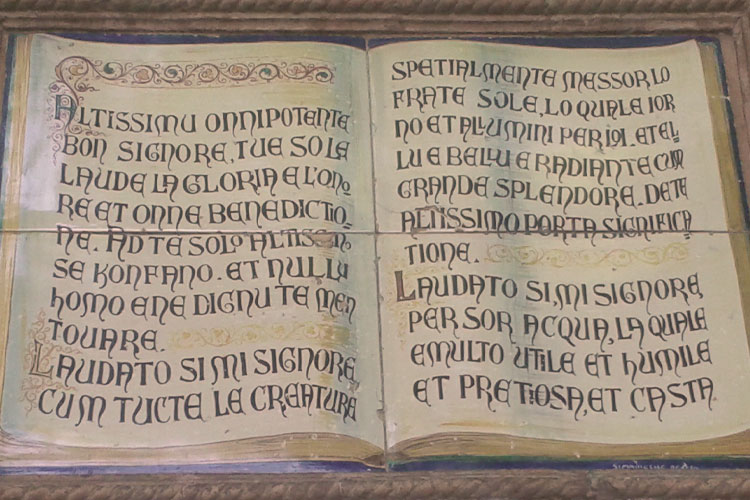 ALTISSIMU ONNIPOTENTE
BON SIGNORE, TUE SO LE
LAUDE LA GLORIA E L'ONO-
RE ET ONNE BENEDICTIO-
NE. AD TE SOLO ALTISSIMO
SE KONFANO. ET NULLU
HOMO ENE DIGNU TE MEN
TOUARE.
LAUDATO SI MI SIGNORE,
CUM TUCTE LE CREATURE
SPETIALMENTE MESSOR LO
FRATE SOLE, LO QUALE IOR
NO ET ALLUMINI PER IOI. ET EL-
LU E BELLU E RADIANTE CUM
GRANDE SPLENDORE. DE TE
ALTISSIMO PORTA SIGNIFICA
TIONE.
LAUDATO SI, MI SIGNORE,
PER SOR ACQUA, LA QUALE
E MULTO UTILE ET HUMILE
ET PRETIOSA, ET CASTA.